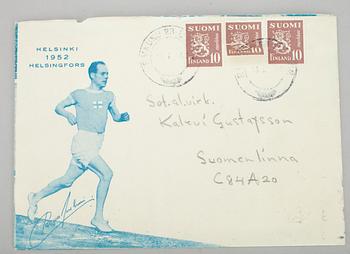 HELSINKI
1952
HELSINGFORS
SUOMI
FINLAND 10
SUOMI
FINLAND 10
SUOMI
FINLAND 10
Sot.alvirk.
Kalevi Gustafsson
Suomenlinna
C84A20